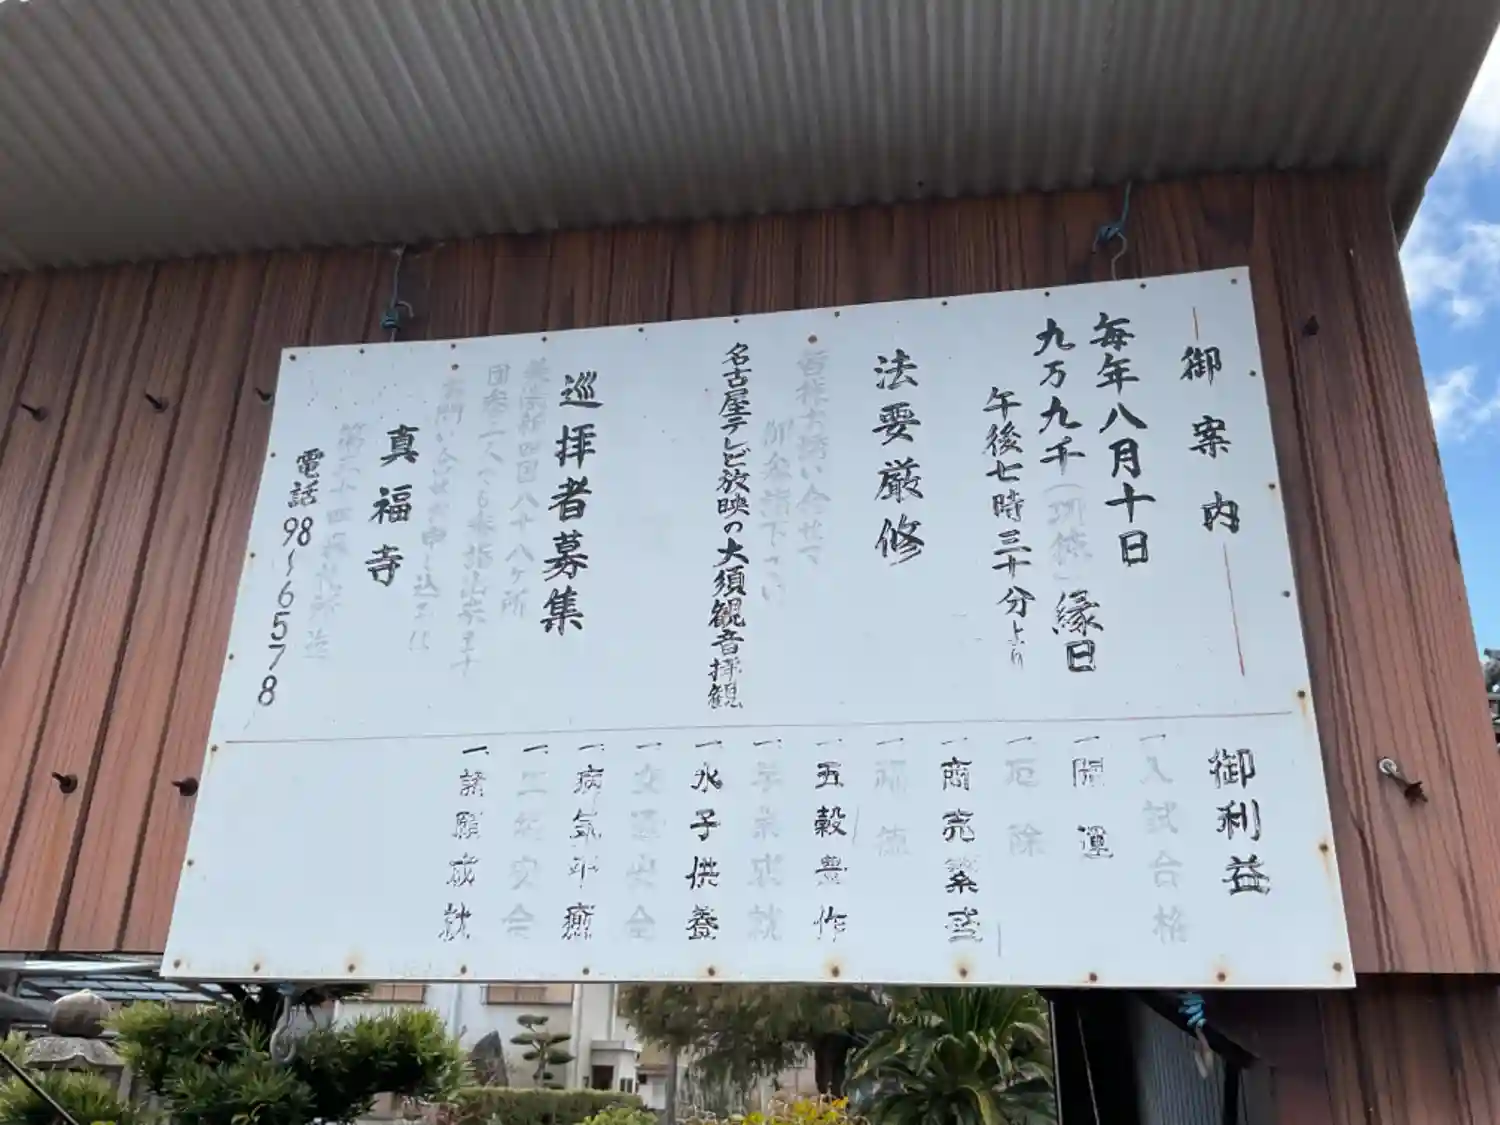 御案内
毎年八月十日
九万九千(功徳)縁日
午後七時三十分より
法要厳修
皆様お誘い合せて
御参詣下さい
名古屋テレビ放映の大須観音拝観
巡拝者募集
新四国八十八ヶ所
団参
お問い合せお申し込みは
真福寺
電話98~6578
御利益
一入試合格
一開運
一厄除
一商売繁盛
一福徳
一五穀豊作
一学業成就
一水子供養
一交通安全
一病気平癒
一諸願成就